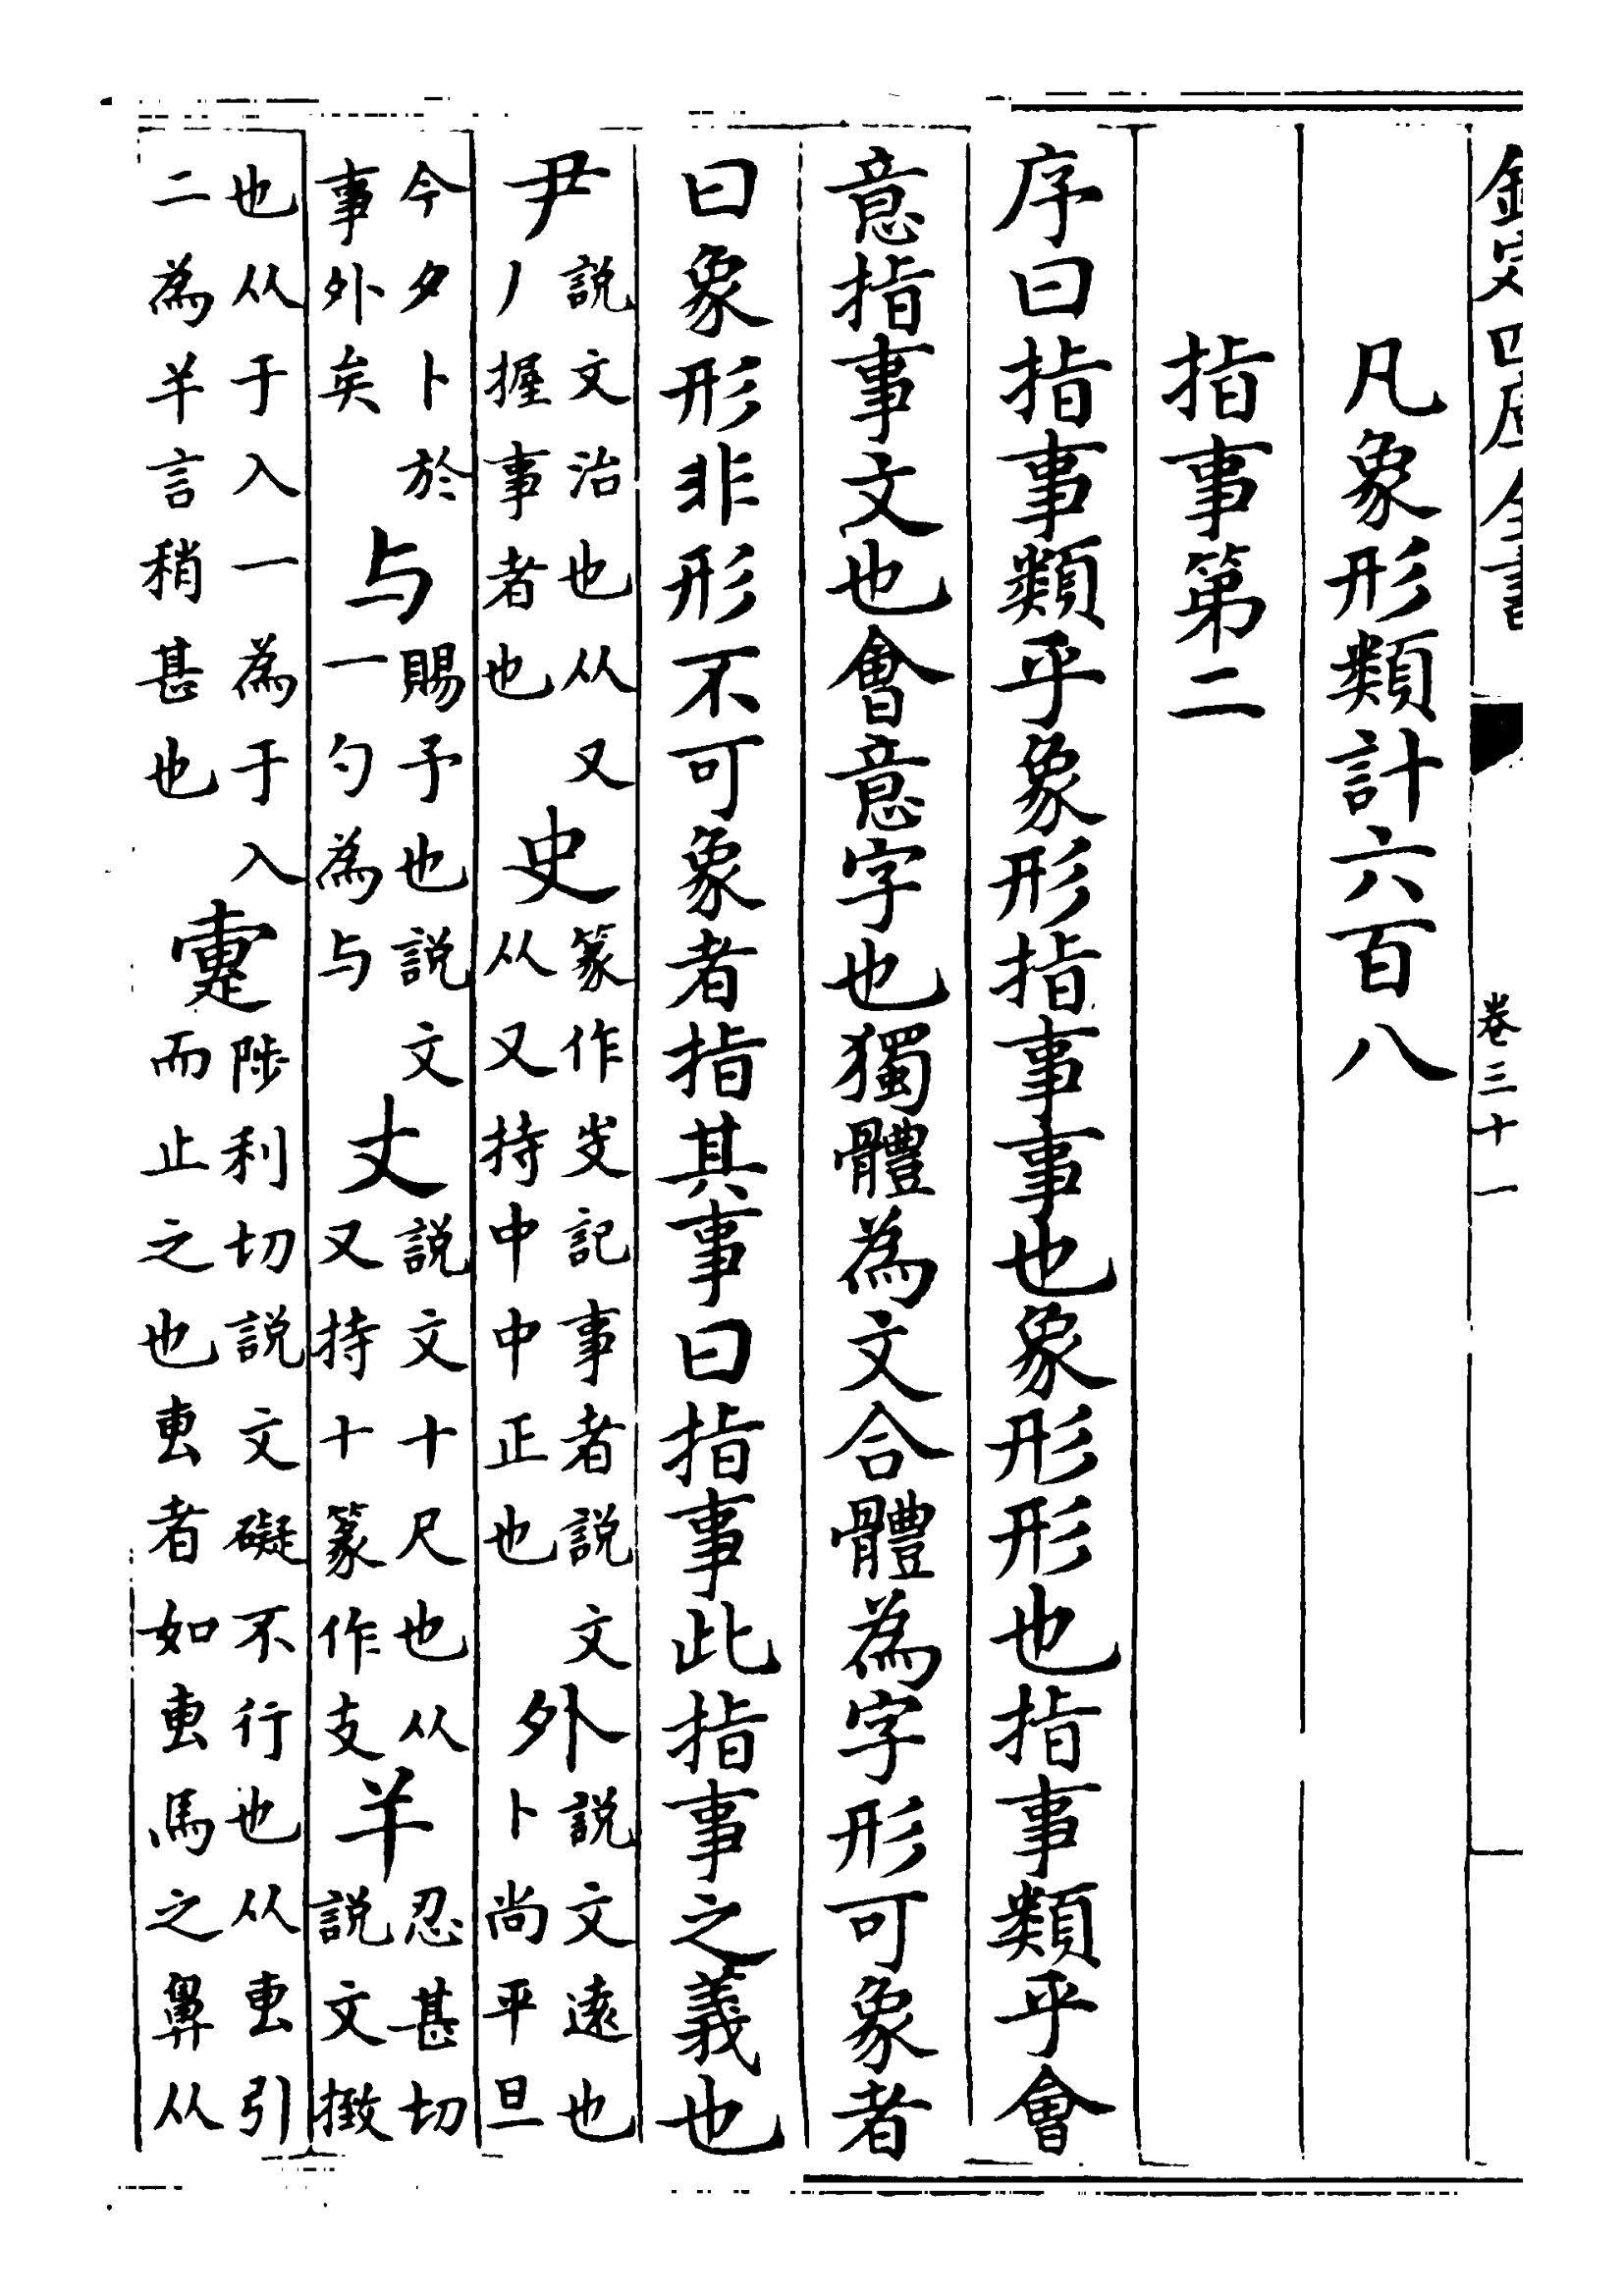 欽定四庫全書 卷三十一
凡象形類計六百八
指事第二
序曰指事類乎象形指事事也象形形也指事類乎會
意指事文也會意字也獨體為文合體為字形可象者
曰象形非形不可象者指其事曰指事此指事之義也
尹說文治也从又丿握事者也史篆作㕜記事者說文从又持中中正也外說文遠也卜尚平旦
今夕卜於事外矣与賜予也說文一勺為与丈說文十尺也从又持十篆作支𢆉忍甚切說文㨖
也从干入一為干入二為𢆉言稍甚也疐陟利切說文礙不行也从叀引而止之也叀者如叀馬之鼻从